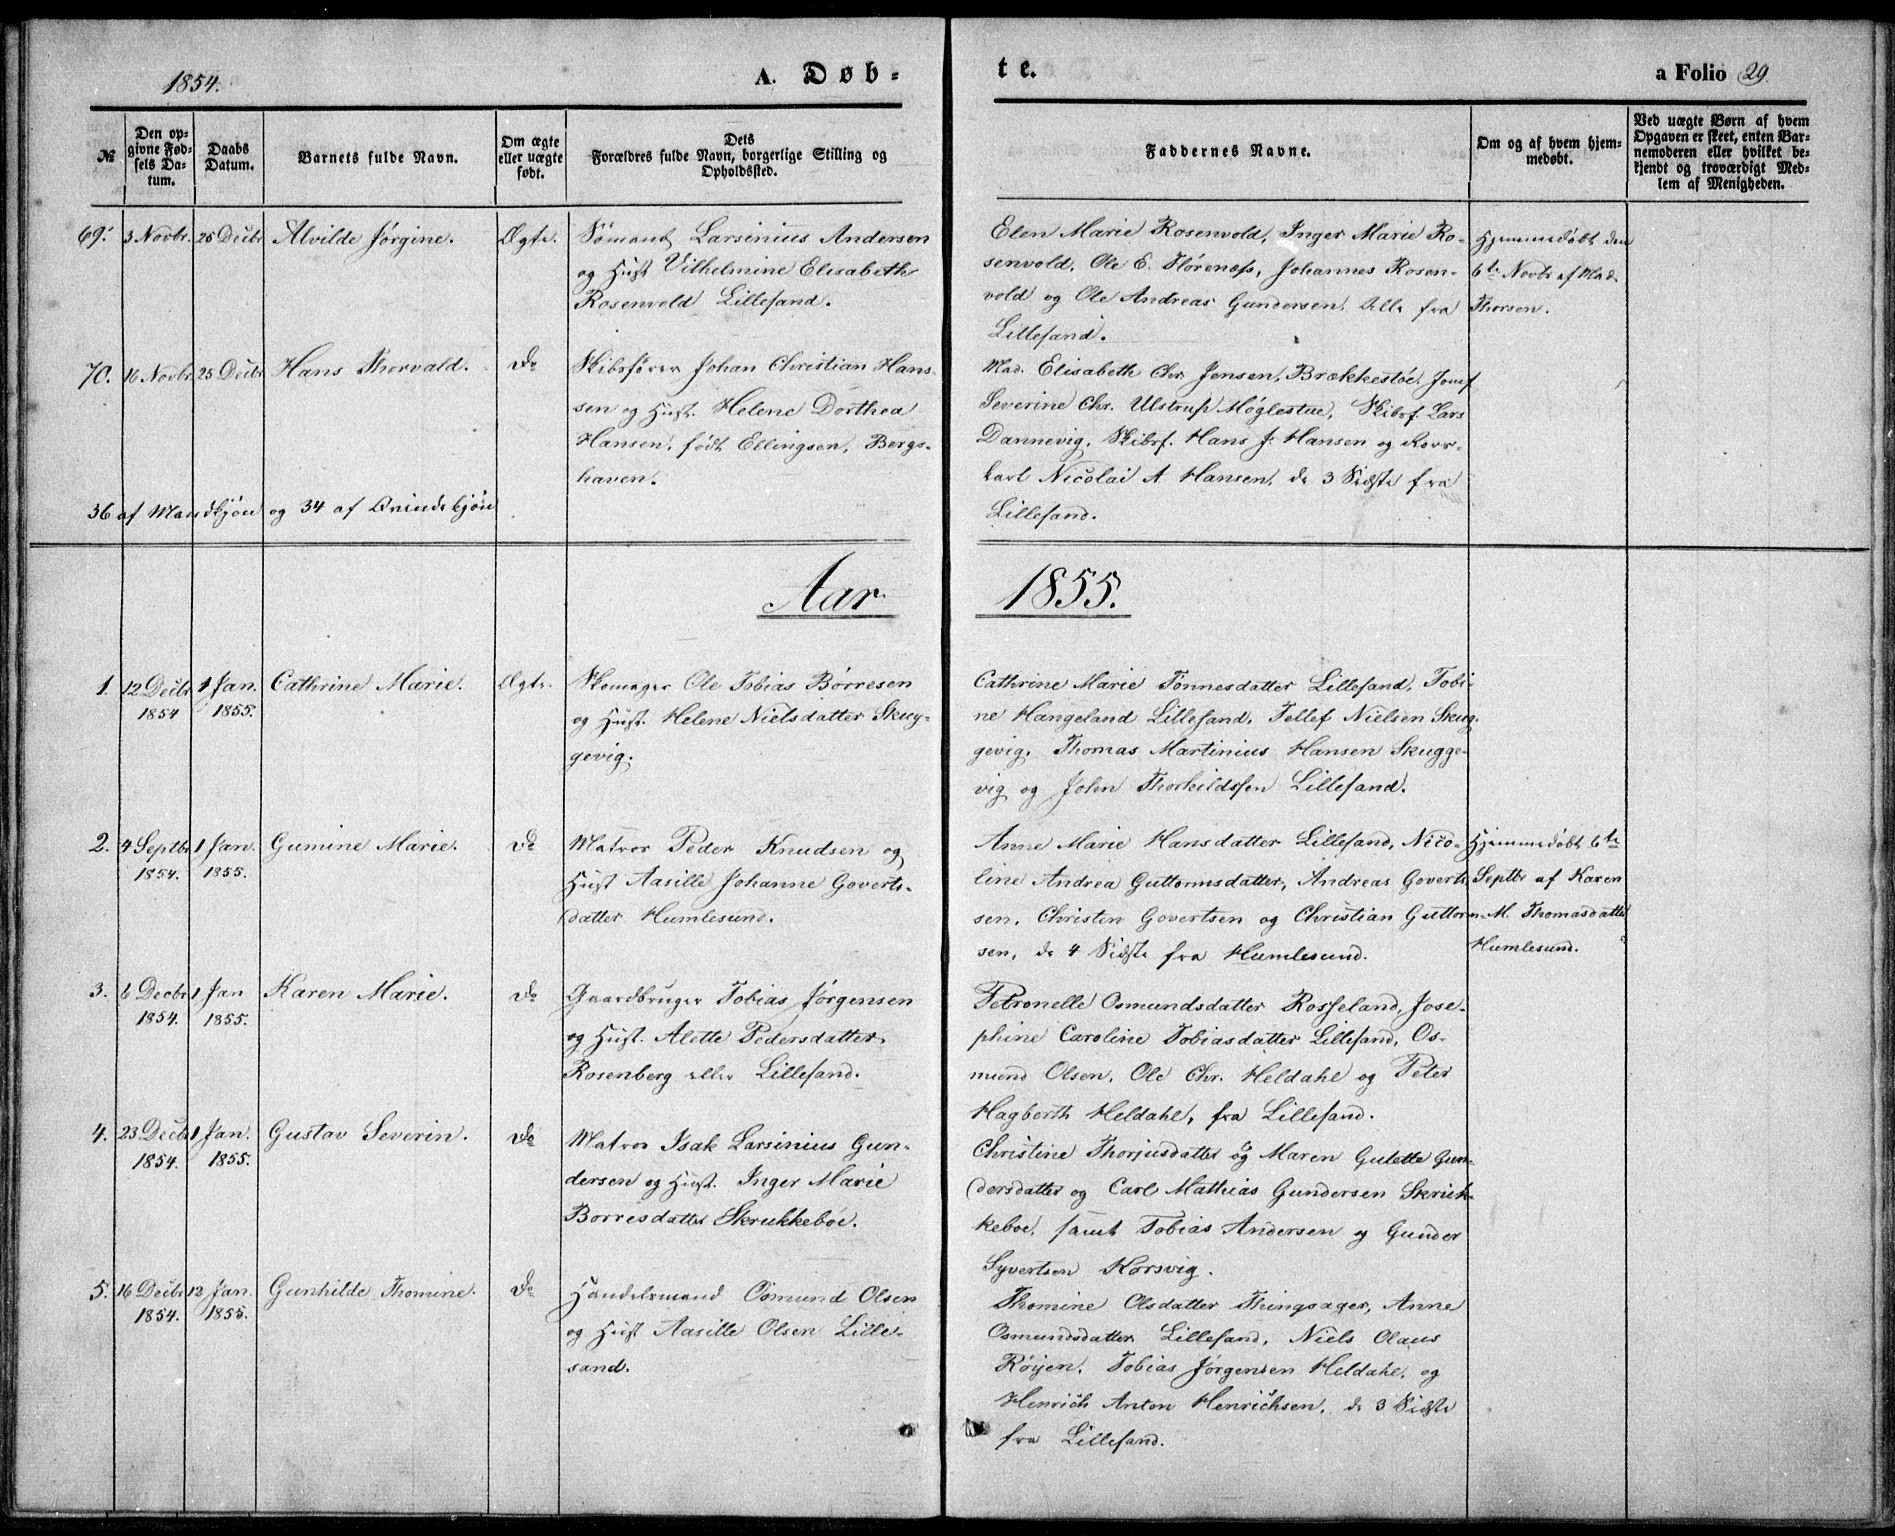 1854.
A. Døb-
te.
a Folio 29.
№
Den op-
givne Fød-
sels Da-
tum.
Daabs
Datum.
Barnets fulde Navn.
Om ægte
eller uægte
født.
Dets
Forældres fulde Navn, borgerlige Stilling og
Opholdssted.
Faddernes Navne.
Om og af hvem hjem-
medøbt.
Ved uægte Børn af hvem
Opgaven er skeet, enten Bar-
nemoderen eller hvilket be-
kjendt og troværdigt Med-
lem af Menigheden.
69. 3 Novbr. 26 Decbr Alvilde Jørgine. Ægte.
Sømand Larsinius Andersen
og Hust Vilhelmine Elisabeth
Rosenvold Lillesand.
Elen Marie Rosenvold, Inger Marie Ro-
senvold, Ole E. Flørenæs, Johannes Rosen-
vold og Ole Andreas Gundersen. Alle fra
Lillesand.
Hjemmedøbt den
6te Novbr af Mad.
Thorsen.
70. 16 Novbr 25 Decbr Hans Thorvald. Do
Skibsfører Johan Christian Han-
sen og Hust. Helene Dorthea
Hansen, født Ellingsen, Bergs-
haven.
Mad. Elisabeth Chr. Jensen, Brækkestøe, Jomf
Severine Chr. Ulstrup Møglestue, Skibsf. Lars
Dannevig, Skibsf. Hans J. Hansen og Rors-
karl Nicolai A Hansen, de 3 Sidste fra
Lillesand.
36 af Mandkjøn og 34 af Qvindekjøn
Aar 1855.
1. 12 Decbr 1 Jan. Cathrine Marie. Ægte.
1854 1855.
Skomager Ole Tobias Børresen
og Hust. Helene Nielsdatter Skug-
gevig.
Cathrine Marie Tønnesdatter Lillesand, Tobi-
ne Hangeland Lillesand, Tellef Nielsen Skug-
gevig, Thomas Martinius Hansen Skugge-
vig og John Thorkildssen Lillesand.
2. 4 Septbr 1 Jan. Gumine Marie. Do
1854. 1855.
Matros Peder Knudsen og
Hust Aasille Johanne Goverts-
datter Humlesund.
Anne Marie Hansdatter Lillesand, Nico-
line Andrea Guttormsdatter, Andreas Govert-
sen, Christen Govertsen og Christian Guttorm-
sen, de 4 Sidste fra Humlesund.
Hjemmedøbt 6te
Septbr af Karen
M. Thomasdatter
Humlesund.
3. 6 Decbr 1 Jan Karen Marie. Do
1854. 1855.
Gaardbruger Tobias Jørgensen
og Hust. Alette Pedersdatter
Rosenberg eller Lillesand.
Petronelle Osmundsdatter Rosseland, Jose-
phine Caroline Tobiasdatter Lillesand, Os-
mund Olsen, Ole Chr. Heldahl og Peter
Hagberth Heldahl, fra Lillesand.
4. 23 Decbr 1 Jan. Gustav Severin. Do
1854. 1855.
Matros Isak Larsinius Gun-
dersen og Hust. Inger Marie
Børresdatter Skrukkebøe.
Christine Thorjusdatter og Maren Gulette Gun-
dersdatter og Carl Mathias Gundersen Skruk-
keboe, samt Tobias Andersen og Gunder
Syvertsen Korsvig.
5. 16 Decbr 12 Jan. Gunhilde Thomine. Do
1854. 1855.
Handelsmand Osmund Olsen
og Hust Aasille Olsen Lille-
sand.
Thomine Olsdatter Thingsager, Anne
Osmundsdatter Lillesand, Niels Olaus
Røijen, Tobias Jørgensen Heldahl, og
Henrich Anton Henrichsen, de 3 Sidste
fra Lillesand.